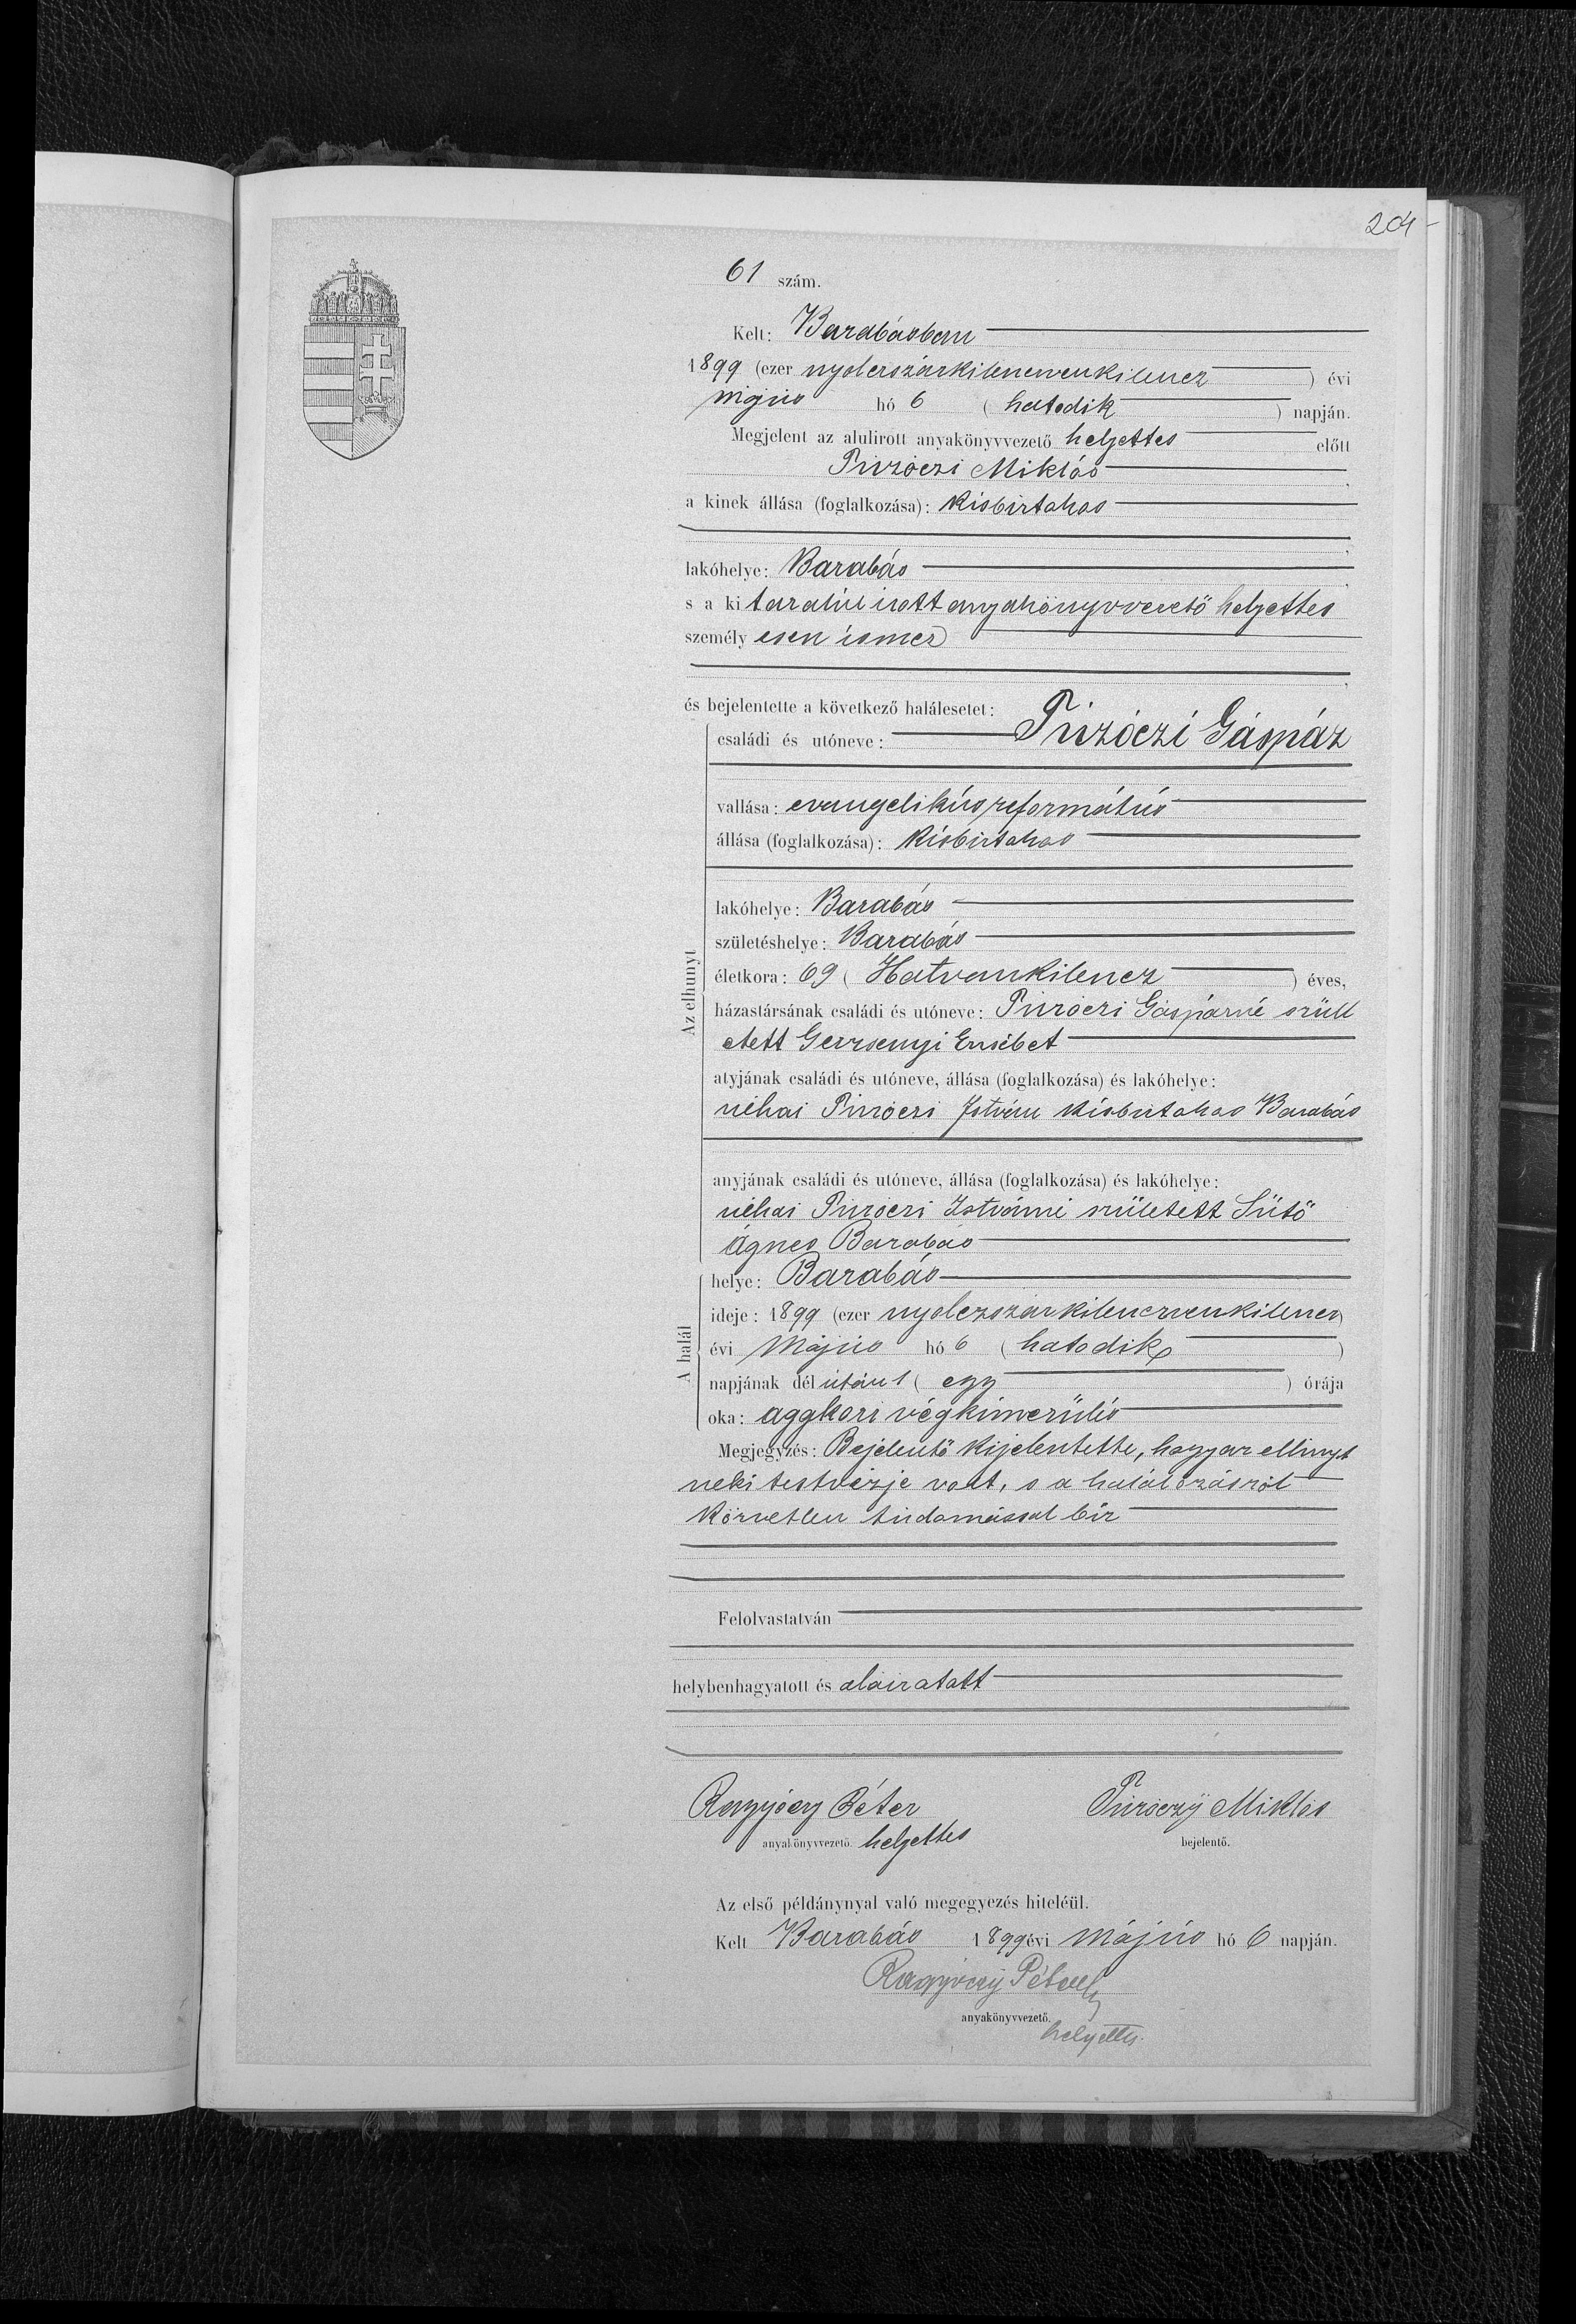 204
61 szám.
Kelt: Barabásban
1899 (ezer nyolczszázkilenczvenkilencz) évi
május hó 6 (hatodik) napján.
Megjelent az alulirott anyakönyvvezető helyettes előtt
Túróczi Miklós,
a kinek állása (foglalkozása): kisbirtokos
lakóhelye: Barabás
s a kit aralúl irott anyakönyvvezető helyettes
személyesen ismer
és bejelentette a következő halálesetet:
Az elhunyt
családi és utóneve: Túróczi Gáspár
vallása: evangelikús református
állása (foglalkozása): kisbirtokos
lakóhelye: Barabás
születéshelye: Barabás
életkora: 69 (Hatvankilencz) éves,
házastársának családi és utóneve: Túróczi Gáspárné szüll
etett Gerzsenyi Erzsébet
atyjának családi és utóneve, állása (foglalkozása) és lakóhelye:
néhai Túróczi István kisbirtokos Barabás
anyjának családi és utóneve, állása (foglalkozása) és lakóhelye:
néhai Túróczi Istvánné született Sütő
Ágnes Barabás
A halál
helye: Barabás
ideje: 1899 (ezer nyolczszázkilenczvenkilencz)
évi május hó 6 (hatodik)
napjának délután 1 (egy) órája
oka: aggkori végkimerülés
Megjegyzés: Bejelentő kijelentette, hogy az elhunyt
neki testvérje volt, s a halálozásról
közvetlen tudomással bír
Felolvastatván
helybenhagyatott és aláiratott
Péter Túróczy Miklós
anyakönyvvezető. helyettes bejelentő.
Az első példánynyal való megegyezés hiteléül.
Kelt Barabás 1899 évi május hó 6 napján.
Péter
anyakönyvvezető.
helyettes.